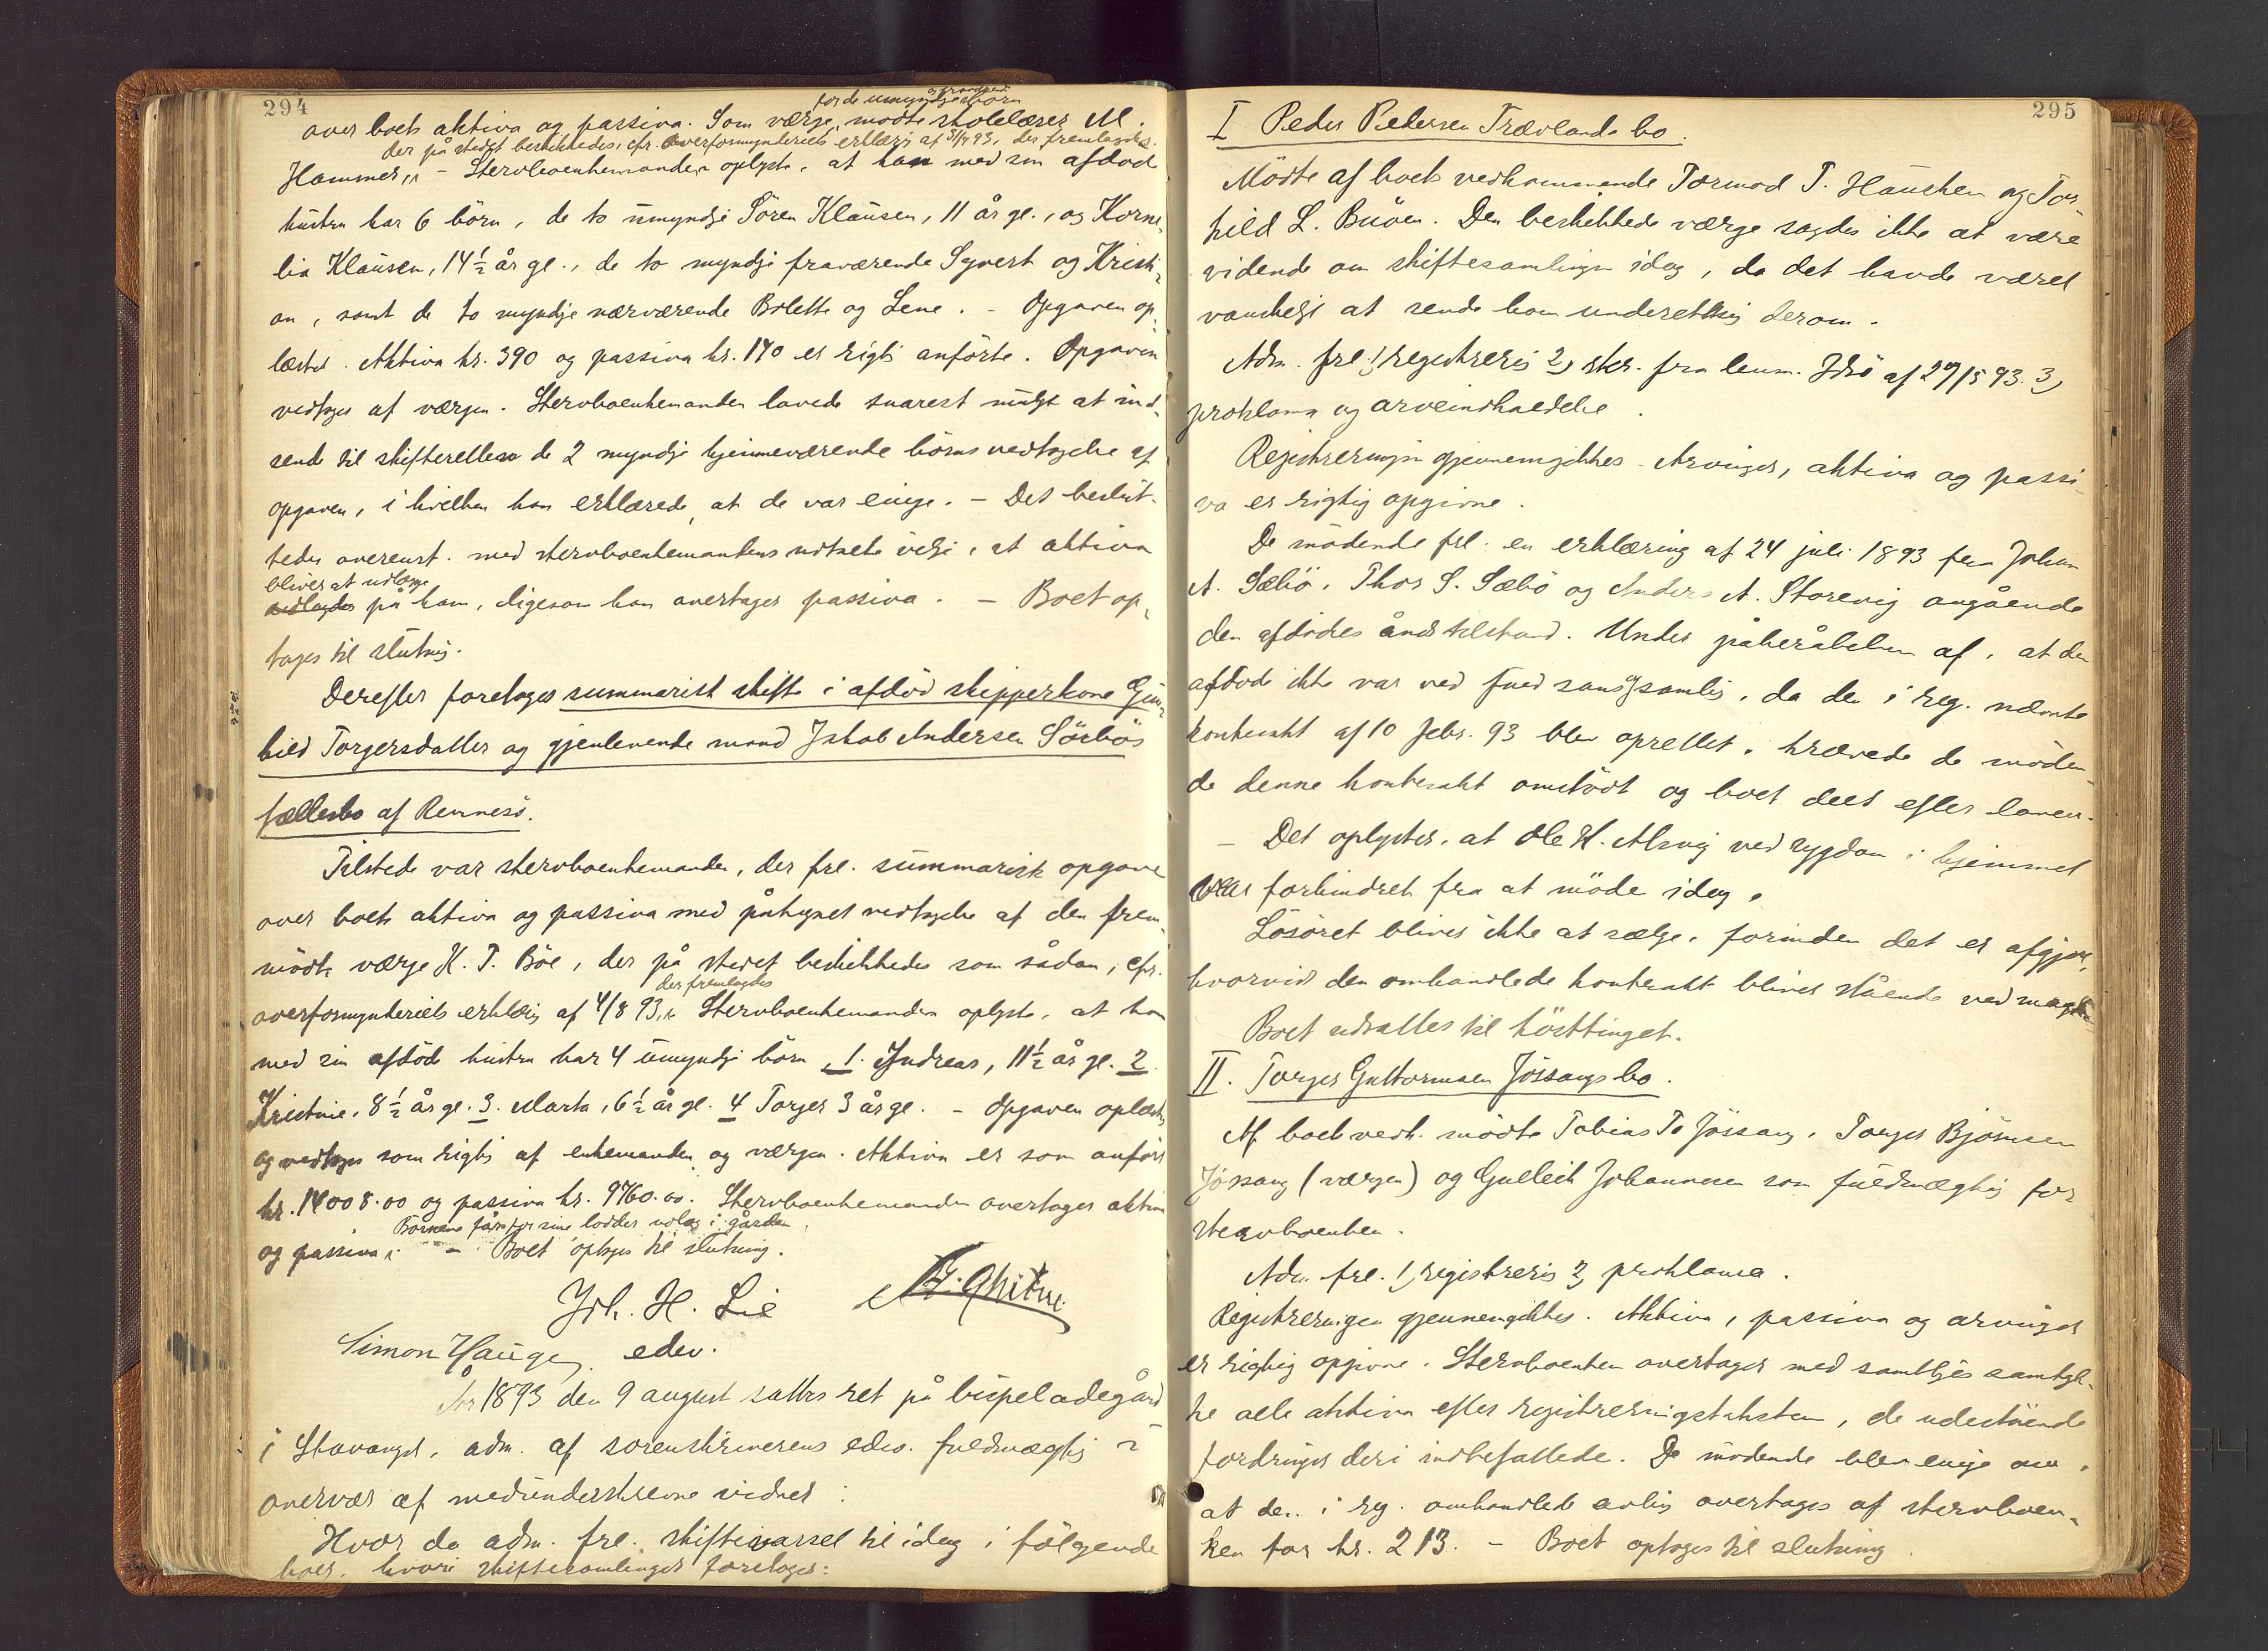 294
for de umyndige børn
over boets aktiva og passiva. Som værge mødte skolelærer M.
der på stedet beskikkedes, cfr. overformynderiets erklærg af 93, der fremlagdes.
Hammer, - Stervboenkemanden oplyste, at han med sin afdøde
hustru har 6 børn, de to umyndige Søren Klausen, 11 år gl., og Korne-
lia Klausen, 14½ år gl., de to myndige fraværende Syvert og Kristi-
an, samt de to myndige nærværende Bolette og Lene. - Opgaven op-
læstes. Aktiva kr. 390 og passiva kr. 140 er rigtig anførte. Opgaven
vedtoges af værgen. Stervboenkemanden lovede snarest muligt at ind-
sende til skifteretten de 2 myndige hjemmeværende börns vedtagelse af
opgaven, i hvilken han erklærede, at de var enige. - Det beslut-
tedes overenst. med stervboenkemandens udtalte vilje, at aktiva
bliver at udlægge
udlagdes på ham, ligesom han overtager passiva. - Boet op-
tages til slutnig.
Derefter foretoges summarisk skifte i afdød skipperkone Gun-
hild Torgersdatter og gjenlevende mand Jakob Andersen Sörbös
fællesbo af Rennesö.
Tilstede var stervboenkemanden, der frl. summarisk opgave
over boets aktiva og passiva med påtegnet vedtagelse af den frem-
mödte værge K. T. Böe, der på stedet beskikkedes som sådan, cfr.
der fremlagdes
overformynderiets erklærig af 4/8 93. Stervboenkemanden oplyste, at han
med sin afdöde hustru har 4 umyndige börn 1. Andreas, 11½ år gl. 2
Kristine, 8½ år gl. 3. Marta, 6½ år gl. 4 Torger 3 år gl. - Opgaven oplæstes
og vedtoges som rigtig af enkemanden og værgen. Aktiva er som anført
kr. 14008.00 og passiva kr. 9760.00. Stervboenkemanden overtager aktiva
Börnene får for sine lodder udlæg i gården.
og passiva. - Boet optages til slutning.
Joh. H. Lie
Simon Hauge, edsv.
År 1893 den 9 august sattes ret på bispeladegård
i Stavanger, adm. af sorenskriverens edsv. fuldmægtig i
overvær af medunderskrevne vidner:
Hvor da adm. frl. skiftevarsel til idag i fölgende
boer, hvori skiftesamlinger foretoges:
295
I Peder Pedersen Trævlands bo.
Mödte af boets vedkommende Tormod T. Hauske og Tor-
hild L. Buöen. Den beskikkede værge sagdes ikke at være
vidende om skiftesamlingen idag, da det havde været
vanskeligt at sende ham underettnig derom.
Adm. frl. 1) registrerig 2) skr. fra lensm. Idsö af 29/5 93. 3)
proklama og arveindkaldelse.
Registreringen gjennemgikkes. Arvinger, aktiva og passi-
va er rigtig opgivne.
De mödende frl. en erklæring af 24 juli 1893 fra Johan
A. Sæbö, Thor S. Sæbö og Anders A. Storevig angående
den afdödes åndstilstand. Under påberåbelsen af, at den
afdöde ikke var ved fuld sans og samling, da den i reg. nævnte
kontrakt af 10 febr. 93 blev oprettet, krævede de möden-
de denne kontrakt omstödt og boet delt efter loven.
- Det oplystes, at Ole H. Alsvig ved sygdom i hjemmet
var forhindret fra at möde idag.
Lösöret bliver ikke at sælge, forinden det er afgjort,
hvorvidt den omhandlede kontrakt bliver stående ved magt.
Boet udsattes til hösttinget.
II. Torger Guttormsen Jössangs bo.
Af boets vedk. mödte Tobias T. Jössang, Torger Björnsen
Jössang (værgen) og Gulleik Johannesen som fuldmægtig for
stervboenken.
Adm. frl. 1) registrerig 2) proklama.
Registreringen gjennemgikkes. Aktiva, passiva og arvinger
er rigtig opgivne. Stervboenken overtager med samtliges samtyk-
ke alle aktiva efter registreringstaksten, de udestående
fordringer deri indbefattede. De mödende blev enige om,
at den i reg. omhandlede avling overtages af stervboen-
ken for kr. 213. - Boet optages til slutning.